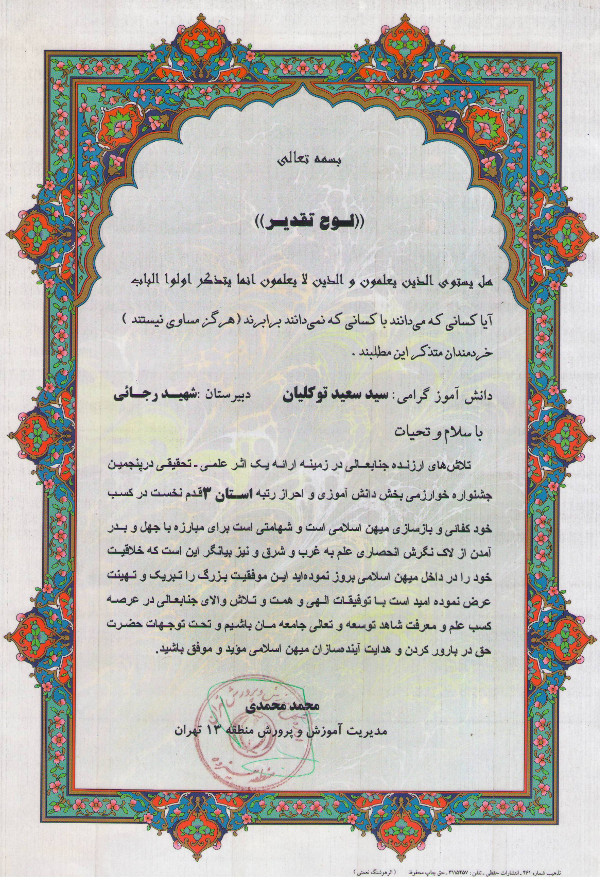 بسمه تعالی
((لوح تقدیر))
هل یستوی الذین یعلمون و الذین لا یعلمون انما یتذکر اولوا الباب
آیا کسانی که می‌دانند با کسانی که نمی‌دانند برابرند (هرگز مساوی نیستند )
خردمندان متذکر این مطلبند .
دانش آموز گرامی: سید سعید توکلیان دبیرستان :شهید رجائی
با سلام و تحیات
تلاش‌های ارزنده جنابعالی در زمینه ارائه یک اثر علمی - تحقیقی درپنجمین
جشنواره خوارزمی بخش دانش آموزی و احراز رتبه استان ۳قدم نخست در کسب
خود کفائی و بازسازی میهن اسلامی است و شهامتی است برای مبارزه با جهل و بدر
آمدن از لاک نگرش انحصاری علم به غرب و شرق و نیز بیانگر این است که خلاقیت
خود را در داخل میهن اسلامی بروز نموده‌اید این موفقیت بزرگ را تبریک و تهینت
عرض نموده امید است با توفیقات الهی و همت و تلاش والای جنابعالی در عرصه
کسب علم و معرفت شاهد توسعه و تعالی جامعه مان باشیم و تحت توجهات حضرت
حق در بارور کردن و هدایت آینده‌سازان میهن اسلامی موید و موفق باشید.
محمد محمدی
مدیریت آموزش و پرورش منطقه ۱۳ تهران
منطقه سیزده